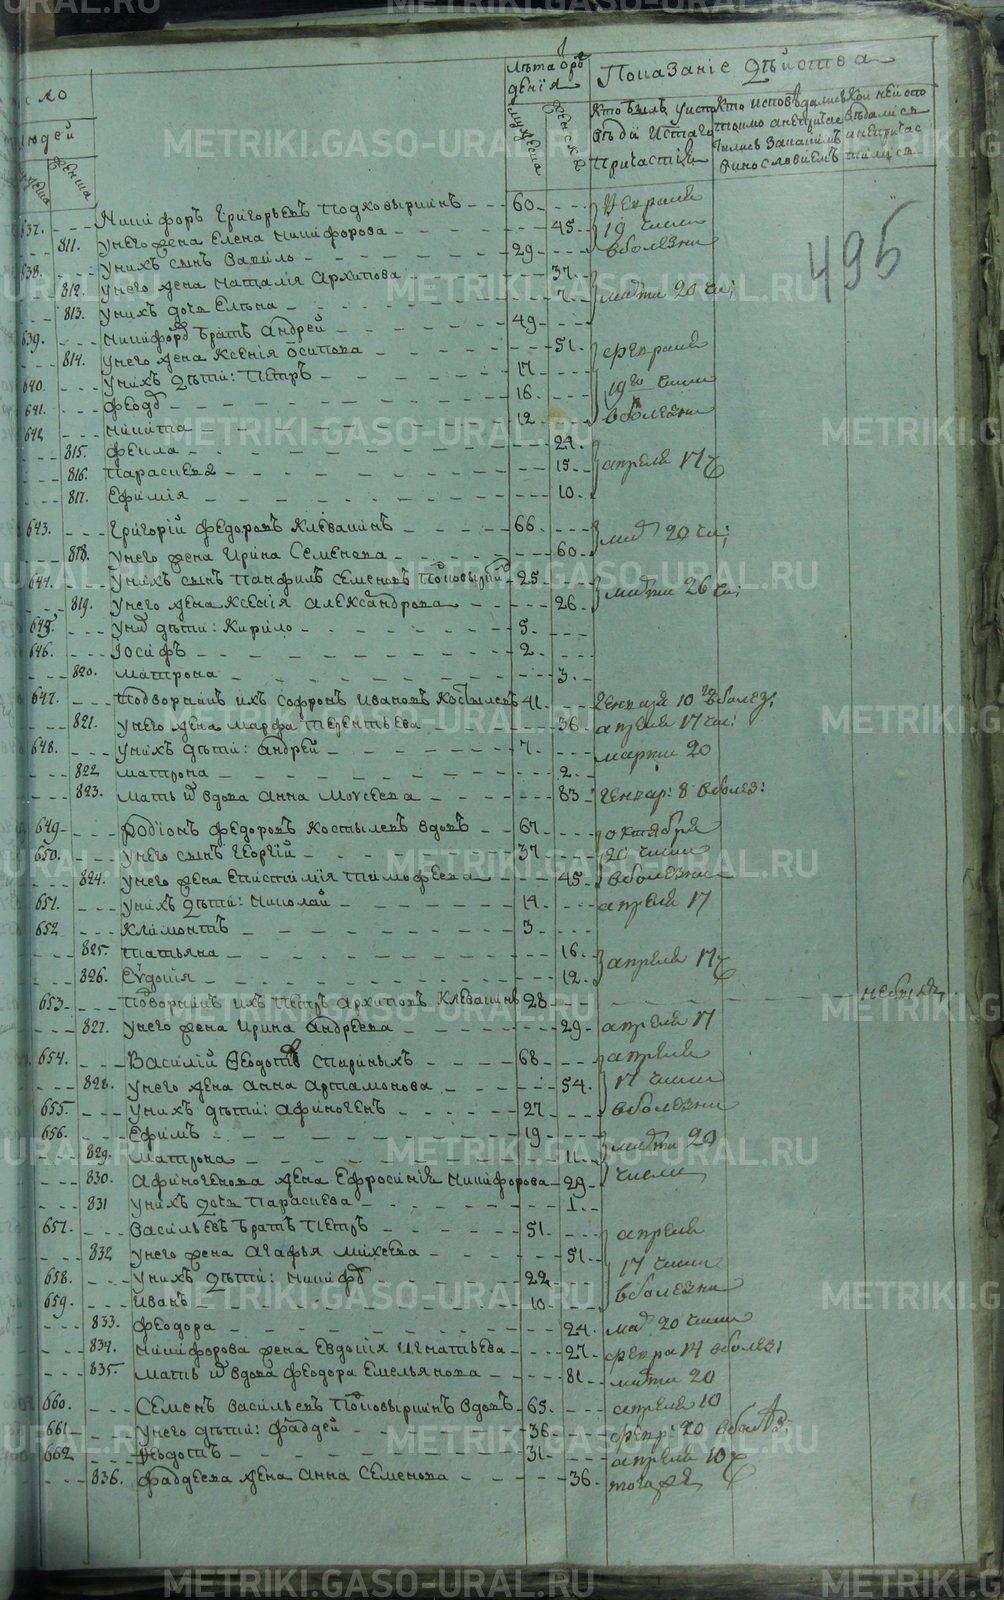 Лѣта ѿрож
денїя
Показанїе Дѣйства
ло
людей
мужеска
женска
Кто былъ у испо
вѣди и стаго
причастїя
Кто исповѣдался
токмо а непричас
тился за какимъ
винословиемъ
Кои не испо
вѣдались
и непричас
тились
495
637. Никифоръ Григорьевъ Подковыркинъ 60 февраля
811. у него жена Елена Никифорова 45 19 числа
638. у нихъ сынъ Вавило 29 вболезни
812. у него жена Наталїя Архипова 37
813. у нихъ дочь Елена 7 марта 20 чи:
639. Никифоръ братъ Андрей 49
814. у него жена Ксенїя Осипова 51 февраля
640. у нихъ дѣти: Петръ 17
641. Феодоръ 16 19го числа
642 Никита 12 вболезни
815. Фекла 21
816. Парасковья 15 апреля 17
817. Ефимїя 10
643. Григорїй Федоровъ Клевакинъ 66
818. у него жена Ирина Семенова 60 20 чи:
644. у нихъ сынъ Панфилъ Семеновъ Подковыркинъ 25 марта 26 чи:
819. у него жена Ксенїя Александрова 26
645. у них дѣти: Кирило 5
646. Іосифъ 2
820. Матрона 3
647. Подворникъ ихъ Софронъ Ивановъ Костылевъ 41 генваря 10го вболез:
821. у него жена Марфа Терентьева 36 апреля 17 чи:
648. у нихъ дѣти: Андрей 7 марта 20
822 Матрона 2
823. мать ѿ вдова Анна Моѵсеева 83 генвар: 8 вболез:
649. Родїонъ Федоровъ Костылевъ вдовъ 67 октября
650. у него сынъ Георгїй 37 20 числа
824. у него жена Епистимїя Тимофеева 45 вболезни
651. у нихъ дѣти: Николай 14 апреля 17
652 Климонтъ 3
825. Татьяна 16
826. Еѵдокїя 12 апреля 17
653. Подворникъ ихъ Петръ Архиповъ Клевакинъ 28 не былъ
827. у него жена Ирина Андреева 29 апреля 17
654. Василїй Ѳеодотовъ Стариковъ 68 апреля
828. у него жена Анна Артамонова 54 17 числа
655. у нихъ дѣти: Афиногенъ 27 вболезни
656. Ефимъ 19 марта 20
829. Матрона 11
830. Афиногенова жена Ефросинїя Никифорова 29 числа
831 у нихъ дочь Парасковья 1
657. Васильевъ братъ Петръ 51 апреля
832 у него жена Агафья Михеева 51 17 числа
658. у нихъ дѣти: Никифоръ 22
659. Иванъ 10 вболезни
833. Феодора 24 мар 20 числа
834. Никифорова жена Евдокїя Игнатьева 27 февра 14 вболез:
835. мать ѿ вдова Феодора Емельянова 81 марта 20
660. Семенъ Васильевъ Подковыркинъ вдовъ 65 апреля 10
661 у него дѣти: Фаддей 36 февр: 20 вболѣз
662 Ѳеодотъ 31 апреля 10
836. Фаддеева жена Анна Семенова 36 тогоже